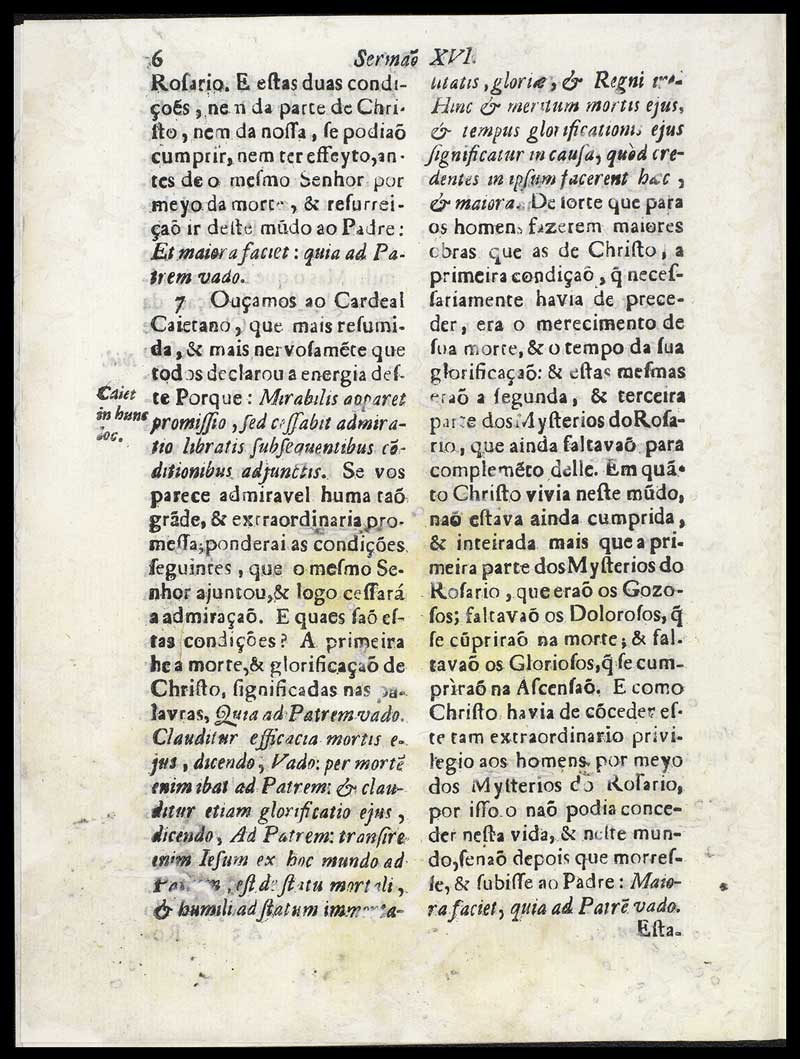 6 Sermaõ XVI.
Roſario. E eſtas duas condi-
çoẽs, nem da parte de Chri-
ſto, nem da noſſa, ſe podiaõ
cumprir, nem ter effeyto, an-
tes de o meſmo Senhor por
meyo da morte, & reſurrei-
çaõ ir deſte mũdo ao Padre:
Et maiora faciet: quia ad Pa-
trem vado.
7 Ouçamos ao Cardeal
Caietano, que mais reſumi-
da, & mais nervoſamẽte que
todos declarou a energia deſ-
te Porque: Mirabilis apparet
promiſſio, ſed ceſſabit admira-
tio libratis ſubſequentibus cõ-
ditionibus adjunctis. Se vos
parece admiravel huma taõ
grãde, & extraordinaria pro-
meſſa, ponderai as condições
ſeguintes, que o meſmo Se-
nhor ajuntou, & logo ceſſará
a admiraçaõ. E quaes ſaõ eſ-
tas condições? A primeira
he a morte, & glorificaçaõ de
Chriſto, ſignificadas nas pa-
lavras, Quia ad Patrem vado.
Clauditur efficacia mortis e-
jus, dicendo, Vado: per mortẽ
enim ibat ad Patrem: & clau-
ditur etiam glorificatio ejus,
dicendo, Ad Patrem: tranſire
enim Ieſum ex hoc mundo ad
eſt de ſtatu mortali,
& humili ad ſtatum immorta-
Caiet
in hunc
loc.
litatis, gloriæ, & Regni
Hinc & meritum mortis ejus,
& tempus glorificationis ejus
ſignificatur in cauſa, quòd cre-
dentes in ipſum facerent hæc,
& maiora. De ſorte que para
os homens fazerem maiores
obras que as de Chriſto, a
primeira condiçaõ, q̃ neceſ-
ſariamente havia de prece-
der, era o merecimento de
ſua morte, & o tempo da ſua
glorificaçaõ: & eſtas meſmas
eraõ a ſegunda, & terceira
parte dos Myſterios do Roſa-
rio, que ainda faltavaõ para
complemẽto delle. Em quã-
to Chriſto vivia neſte mũdo,
naõ eſtava ainda cumprida,
& inteirada mais que a pri-
meira parte dos Myſterios do
Roſario, que eraõ os Gozo-
ſos; faltavaõ os Doloroſos, q̃
ſe cũpriraõ na morte; & fal-
tavaõ os Glorioſos, q̃ ſe cum-
prìraõ na Aſcenſaõ. E como
Chriſto havia de cõceder eſ-
te tam extraordinario privi-
legio aos homens por meyo
dos Myſterios do Roſario,
por iſſo o naõ podia conce-
der neſta vida, & neſte mun-
do, ſenaõ depois que morreſ-
ſe, & ſubiſſe ao Padre: Maio-
ra faciet, quia ad Patrẽ vado.
Eſta-